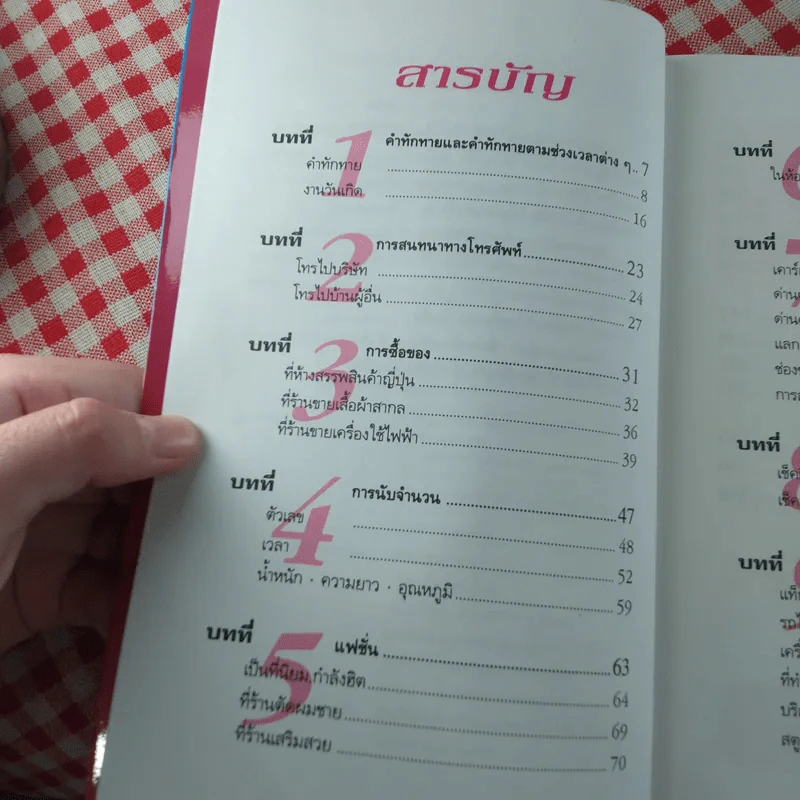 สารบัญ
บทที่ 1 คำทักทายและคำทักทายตามช่วงเวลาต่าง ๆ.. 7
คำทักทาย 8
งานวันเกิด 16
บทที่ 2 การสนทนาทางโทรศัพท์ 23
โทรไปบริษัท 24
โทรไปบ้านผู้อื่น 27
บทที่ 3 การซื้อของ 31
ที่ห้างสรรพสินค้าญี่ปุ่น 32
ที่ร้านขายเสื้อผ้าสากล 36
ที่ร้านขายเครื่องใช้ไฟฟ้า 39
บทที่ 4 การนับจำนวน 47
ตัวเลข 48
เวลา 52
น้ำหนัก · ความยาว · อุณหภูมิ 59
บทที่ 5 แฟชั่น 63
เป็นที่นิยม, กำลังฮิต 64
ที่ร้านตัดผมชาย 69
ที่ร้านเสริมสวย 70
บทที่
บทที่
บทที่
บทที่